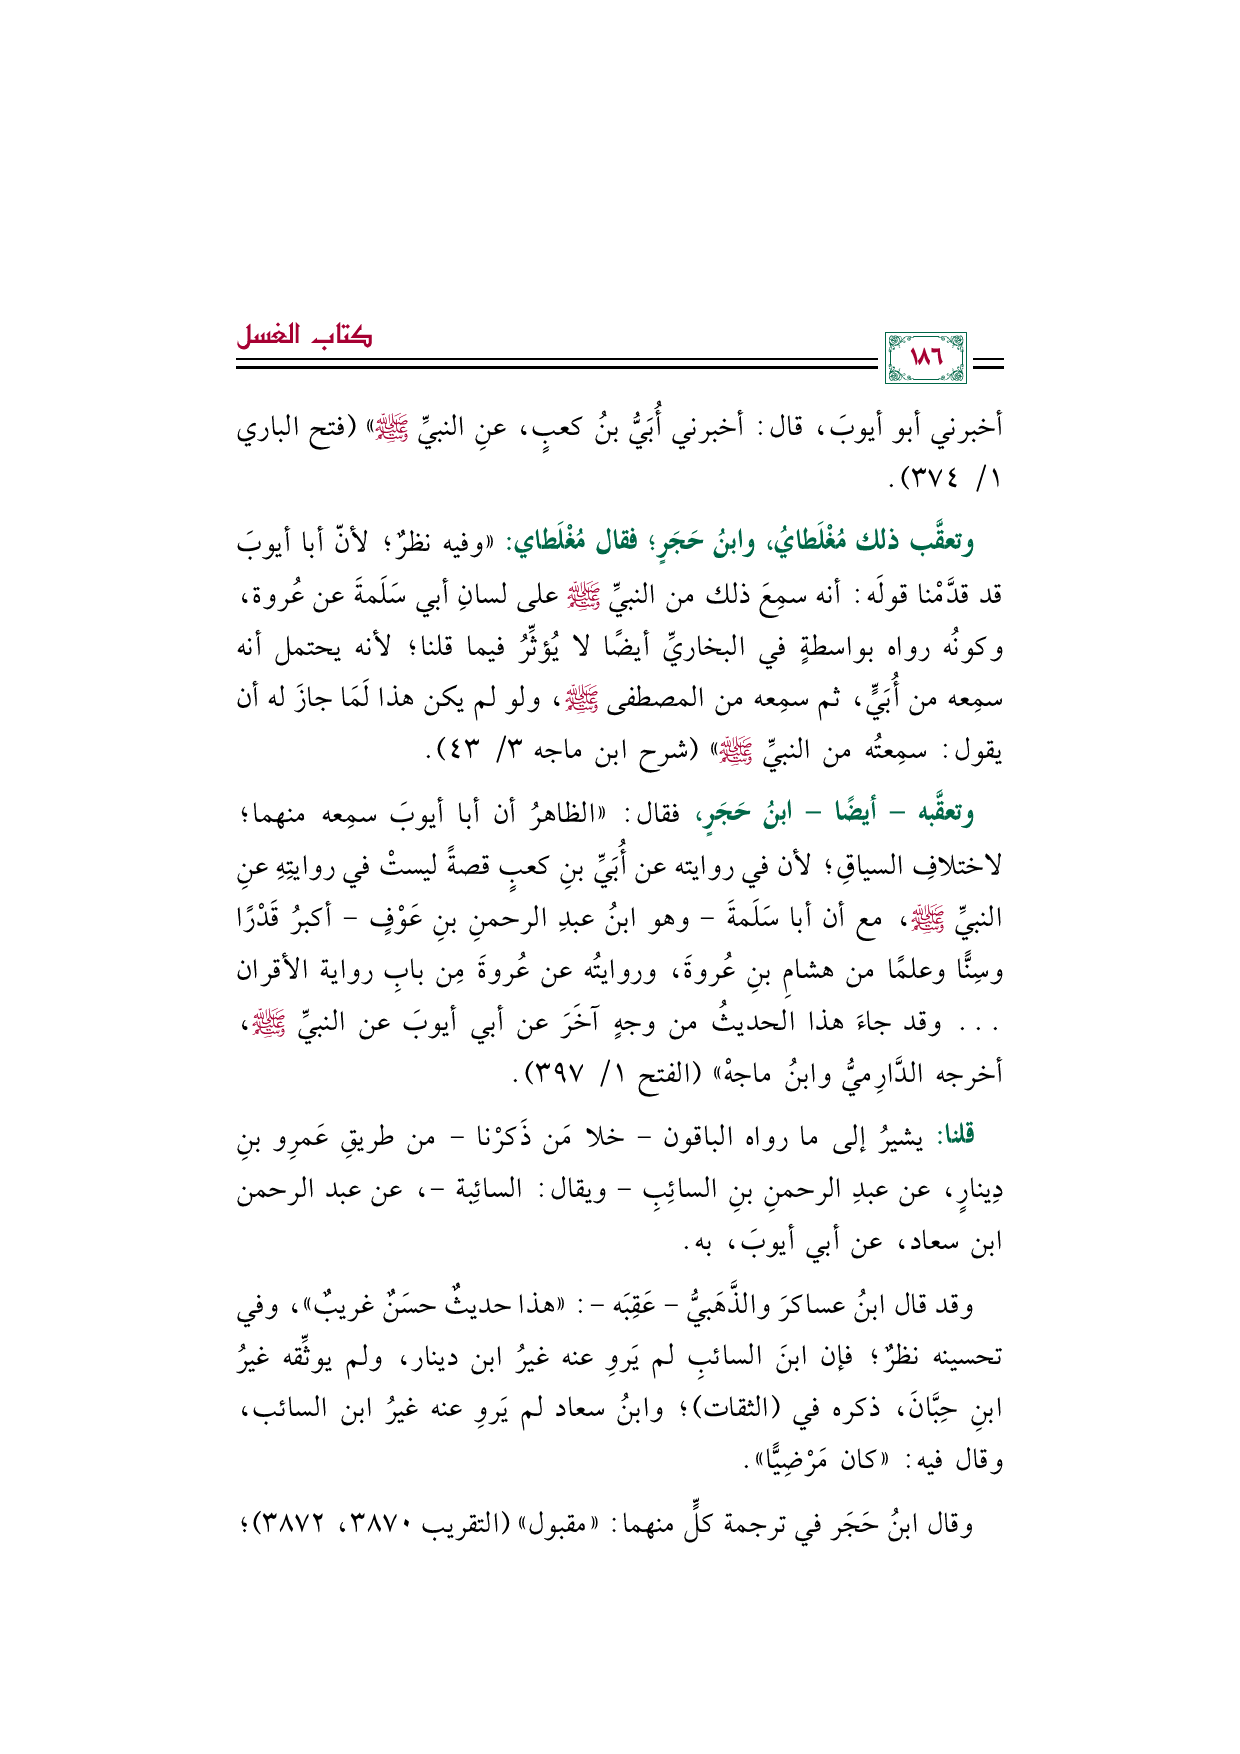 كتاب الغسل
١٨٦
أخبرني أبو أيوبَ، قال: أخبرني أُبَيُّ بنُ كعبٍ، عنِ النبيِّ ﷺ» (فتح الباري
١/ ٣٧٤).
وتعقَّب ذلك مُغْلَطايُ، وابنُ حَجَرٍ؛ فقال مُغْلَطاي: «وفيه نظرٌ؛ لأنّ أبا أيوبَ
قد قدَّمْنا قولَه: أنه سمِعَ ذلك من النبيِّ ﷺ على لسانِ أبي سَلَمةَ عن عُروة،
وكونُه رواه بواسطةٍ في البخاريِّ أيضًا لا يُؤثِّرُ فيما قلنا؛ لأنه يحتمل أنه
سمِعه من أُبَيٍّ، ثم سمِعه من المصطفى ﷺ، ولو لم يكن هذا لَمَا جازَ له أن
يقول: سمِعتُه من النبيِّ ﷺ» (شرح ابن ماجه ٣/ ٤٣).
وتعقَّبه - أيضًا - ابنُ حَجَرٍ، فقال: «الظاهرُ أن أبا أيوبَ سمِعه منهما؛
لاختلافِ السياقِ؛ لأن في روايته عن أُبَيِّ بنِ كعبٍ قصةً ليستْ في روايتِهِ عنِ
النبيِّ ﷺ، مع أن أبا سَلَمةَ - وهو ابنُ عبدِ الرحمنِ بنِ عَوْفٍ - أكبرُ قَدْرًا
وسِنًّا وعلمًا من هشامِ بنِ عُروةَ، وروايتُه عن عُروةَ مِن بابِ رواية الأقران
... وقد جاءَ هذا الحديثُ من وجهٍ آخَرَ عن أبي أيوبَ عن النبيِّ ﷺ،
أخرجه الدَّارِميُّ وابنُ ماجهْ» (الفتح ١/ ٣٩٧).
قلنا: يشيرُ إلى ما رواه الباقون - خلا مَن ذَكرْنا - من طريقِ عَمرِو بنِ
دِينارٍ، عن عبدِ الرحمنِ بنِ السائِبِ - ويقال: السائِبة -، عن عبد الرحمن
ابن سعاد، عن أبي أيوبَ، به.
وقد قال ابنُ عساكرَ والذَّهَبيُّ - عَقِبَه -: «هذا حديثٌ حسَنٌ غريبٌ»، وفي
تحسينه نظرٌ؛ فإن ابنَ السائبِ لم يَروِ عنه غيرُ ابن دينار، ولم يوثِّقه غيرُ
ابنِ حِبَّانَ، ذكره في (الثقات)؛ وابنُ سعاد لم يَروِ عنه غيرُ ابن السائب،
وقال فيه: «كان مَرْضِيًّا».
وقال ابنُ حَجَر في ترجمة كلٍّ منهما: «مقبول» (التقريب ٣٨٧٠، ٣٨٧٢)؛